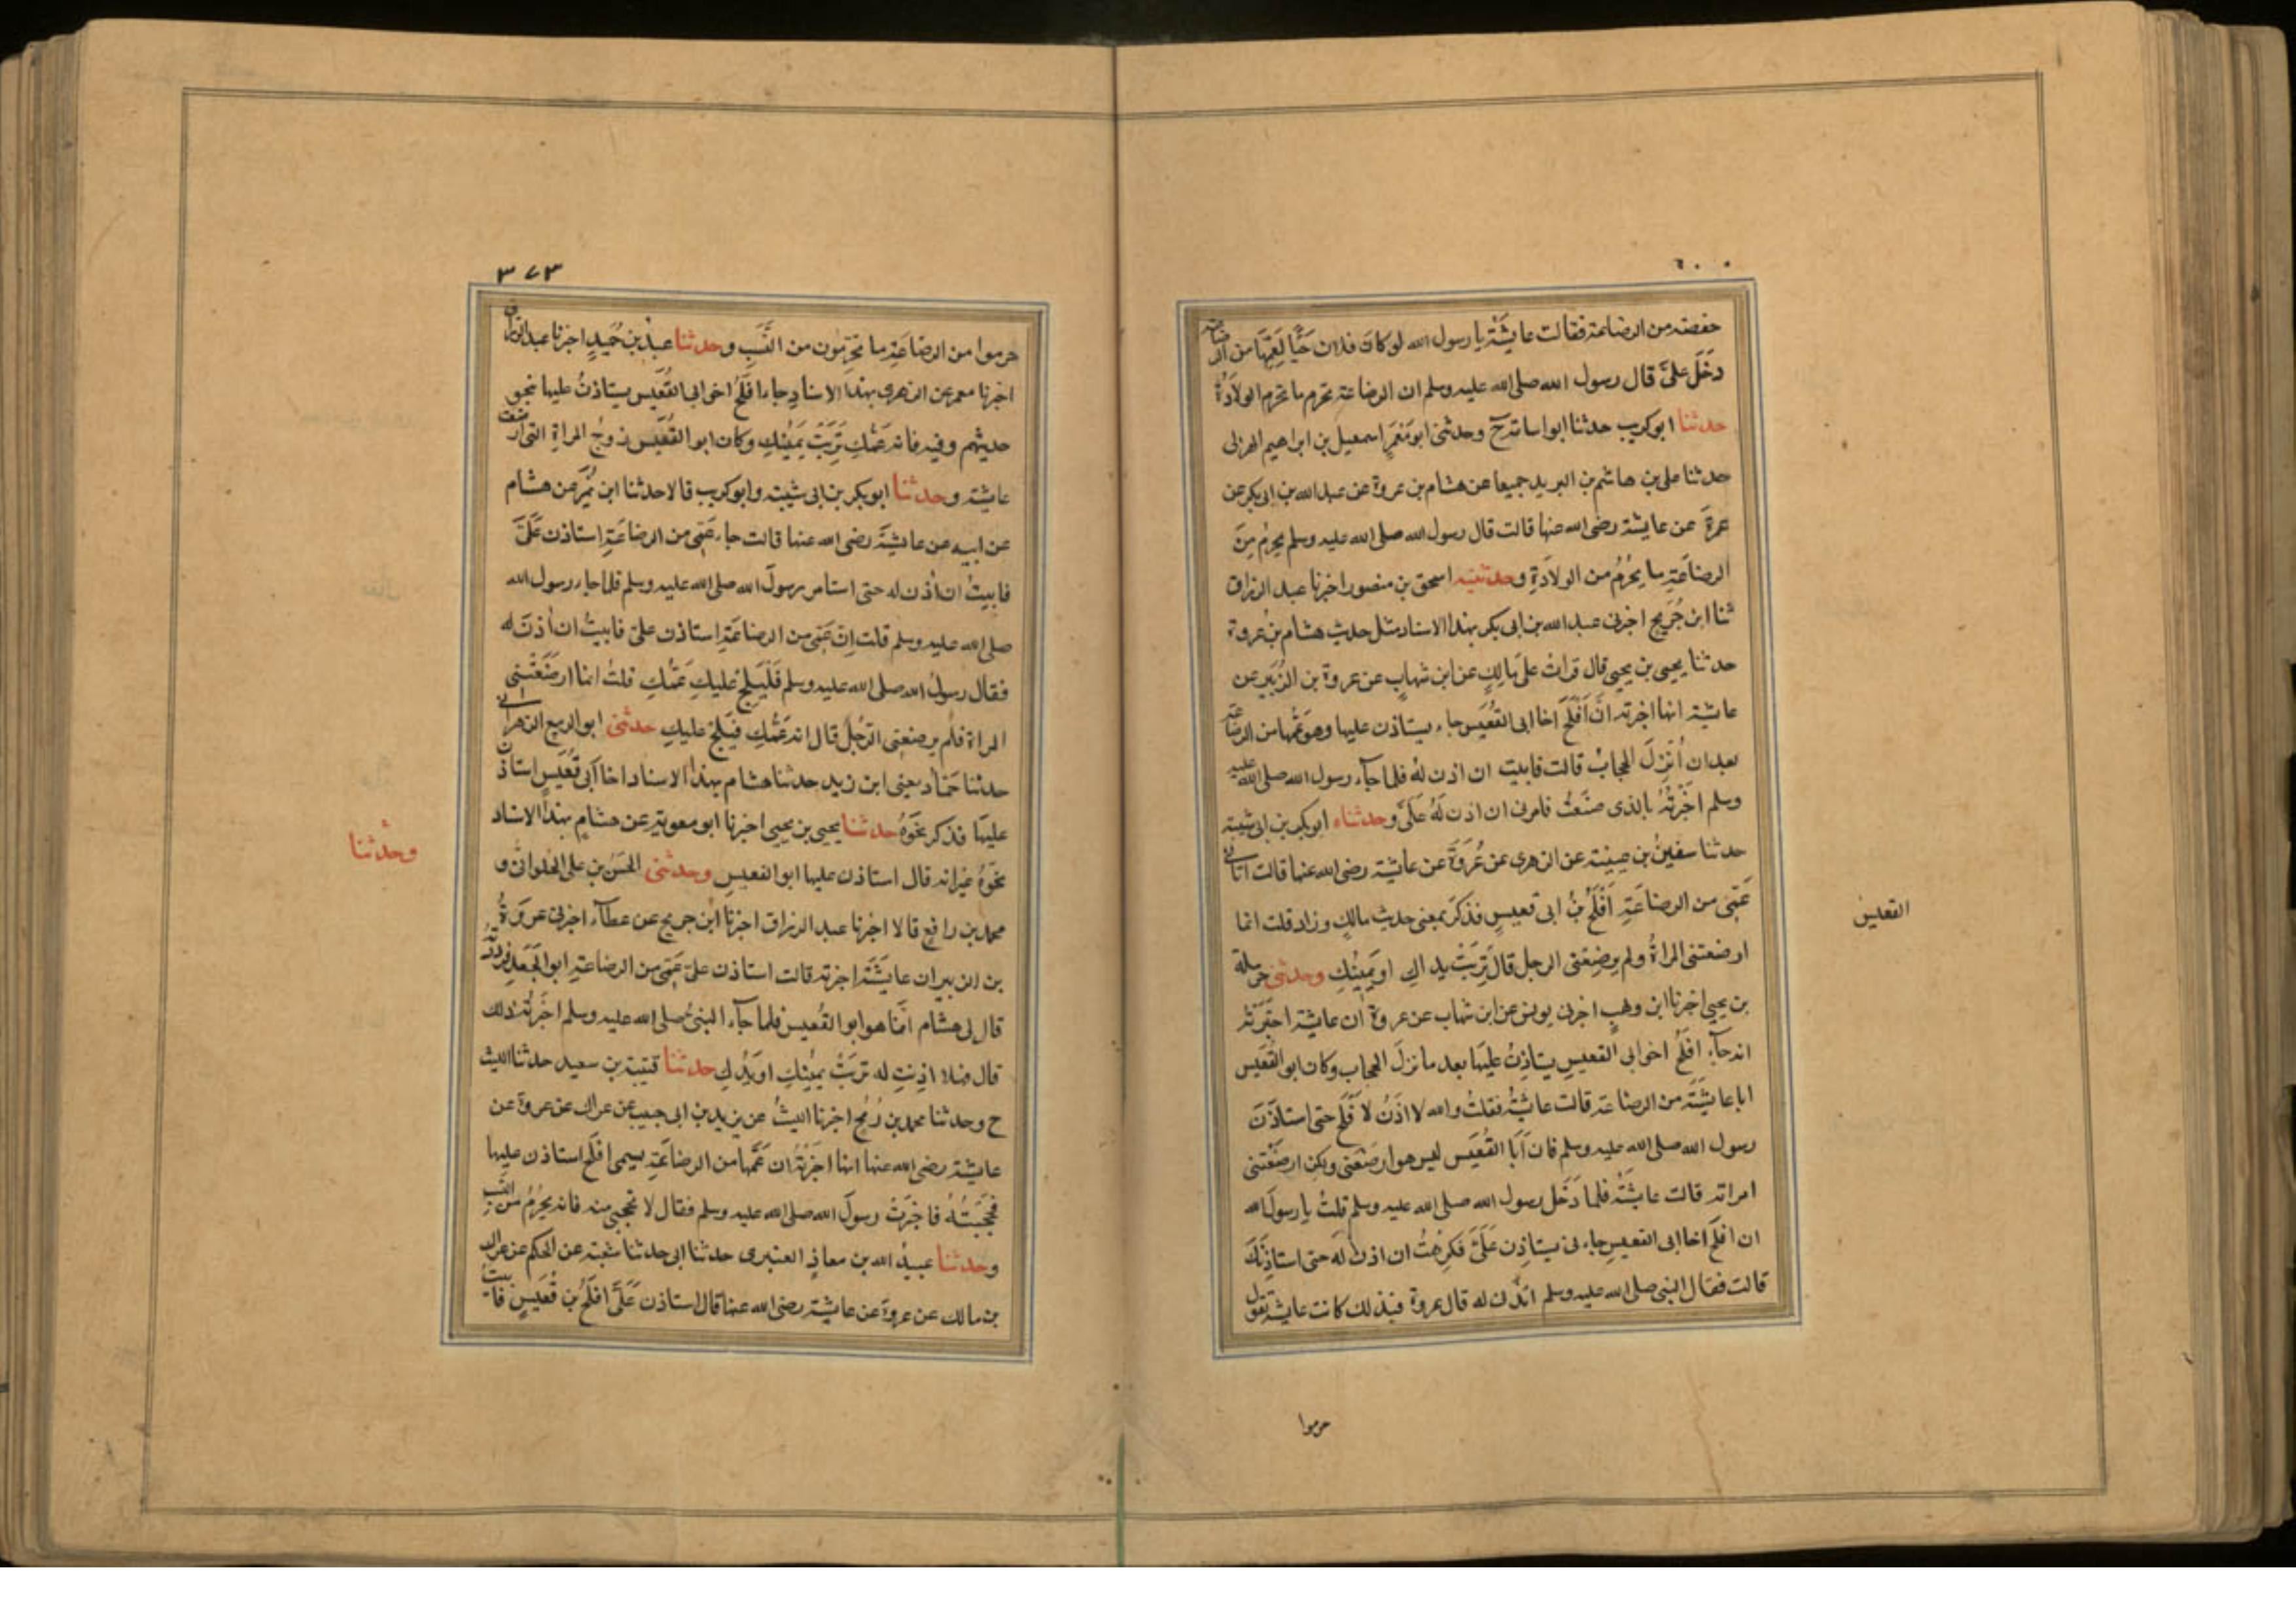 حفصة من الرضاعة فقالت عايشَة يا رسول الله لو كانَ فلان حَيًّا لِعَمِّهَا من الرضاعة
دَخَلَ علىَّ قال رسول الله صلى الله عليه وسلم ان الرضاعة تحرم ما تحرم الولادَةُ
حدثنا ابو كريب حدثنا ابو اسامة ح وحدثنى ابو مَعْمَر اسمعيل بن ابراهيم الهزلى
حدثنا على بن هاشم بن البريد جميعا عن هشام بن عروة عن عبد الله بن ابى بكر عن
عمرةَ عن عايشة رضى الله عنها قالت قال رسول الله صلى الله عليه وسلم يحرُم مِنَ
الرضَاعَةِ ما يَحْرُمُ من الولادَةِ وحدثنيه اسحق بن منصور اخبرنا عبد الرزاق
ثنا ابن جُرَيج اخبرنى عبد الله بن ابى بكر بهذا الاسناد مثل حديث هشام بن عروة
حدثنا يحيى بن يحيى قال قراتُ على مالِكٍ عن ابن شهابٍ عن عروة بن الزُّبَيرِ عن
عايشة انها اخبرته انَّ اَفْلَحَ اخا ابى القُعَيس جاء يستاذن عليها وهو عَمُّها من الرضاعَة
بعد ان اُنْزِلَ الحجابُ قالت فابيت ان اذن لهُ فلما جآء رسول الله صلى الله عليه
وسلم اخْبَرْتُهُ بالذى صنَعْتُ فامرنى ان اذن لَهُ علَىَّ وحدثناه ابو بكر بن ابى شيبة
حدثنا سفينُ بن عيينة عن الزهرى عن عُروَةَ عن عايشة رضى الله عنها قالت اتانى
عَمِّى من الرضاعَةِ اَفْلَحُ بنُ ابى قعيسٍ فذكَرَ بمعنى حديث مالكٍ وزاد قلت انما
ارضعتنى المراةُ ولم يرضِعنى الرجل قالَ تَرِبَتْ يداكِ او يَمِينُكِ وحدثنى حرملة
بن يحيى اخبرنا ابن وهبٍ اخبرنى يونس عن ابن شهاب عن عروة ان عايشة اخبَرَتْهُ
انه جآءَ افلَحُ اخو ابى القعيسِ يستاذِنُ عليَها بعد ما نزلَ الحجاب وكان ابو القُعَيس
ابا عايشَةَ من الرضاعة قالت عايشَةُ فقلتُ والله لا اذَنُ لاَفْلَحَ حتى استاذَنَ
رسول الله صلى الله عليه وسلم فان اَبَا القُعَيس ليس هو ارضَعَنى ولكن ارضَعَتْنى
امراته قالت عايشَةُ فلما دَخَل رسول الله صلى الله عليه وسلم قلتُ يا رسولَ الله
ان افلَحَ اخا ابى القعيسِ جاءنى يستاذِن عَلَىَّ فكرِهْتُ ان اذنَ لَهُ حتى استاذِنَكَ
قالت فقال النبى صلى الله عليه وسلم ائذن له قال عروة فبذلك كانت عايشة تقول
القعيس
حرموا
٣٧٣
حرموا من الرضاعَةِ ما تُحَرِّمُون من النَّسَبِ وحدثنا عبدُ بن حُمَيدٍ اخبرنا عبد الرزاق
اخبرنا معمر عن الزهرى بهذا الاسنادِ جاء اَفْلَحُ اخو ابى القُعَيس يستاذنُ عليها بنحو
حديثهم وفيه فانه عَمُّكِ تَرِبَتْ يَمِينُكِ وكان ابو القُعَيْس زوجُ المراةِ التى ارضعت
عايشة وحدثنا ابو بكر بن ابى شيبة وابو كريب قالا حدثنا ابن نُمَيرٍ عن هشام
عن ابيه عن عايشَةَ رضى الله عنها قالت جاء عَمِّى من الرضاعَةِ استاذن عَلَىَّ
فابيتُ ان اٰذن له حتى استامر رسولَ الله صلى الله عليه وسلم فلما جاء رسول الله
صلى الله عليه وسلم قلت اِنّ عَمِّى من الرضاعَةِ استاذن علىّ فابيتُ ان اٰذنَ له
فقال رسولُ الله صلى الله عليه وسلم فَلْيَلِجْ عليكِ عَمُّكِ قلتُ انما ارضَعَتْنِى
المراة فلم يرضعنى الرَّجُلُ قال انه عَمُّكِ فَيَلِجْ عليكِ حدثنى ابو الربيع الزهرانى
حدثنا حَمَّاد يعنى ابن زيد حدثنا هشام بهذا الاسناد اخا اَبى قُعَيسٍ استاذن
عليهَا فذكر نَحْوَهُ حدثنا يحيى بن يحيى اخبرنا ابو معوية عن هشامٍ بهذا الاسناد
نَحْوَهُ غير انه قال استاذن عليها ابو القعيسِ وحدثنى الحَسَنُ بن على الحُلوانىّ و
محمد بن رافعٍ قالا اخبرنا عبد الرزاق اخبرنا ابن جريج عن عطآء اخبرنى عروَةُ
بن الزبير ان عايشَةَ اخبرته قالت استاذن علىّ عَمِّى من الرضاعةِ ابو الجَعدِ فرددته
قال لى هشام اِنَّما هو ابو القُعيس فلما جآء النبىُّ صلى الله عليه وسلم اخبَرتُهُ ذلك
قال فهلا اذِنتِ له تربَتْ يمينُكِ او يَدُكِ حدثنا قتيبة بن سعيد حدثنا الليث
ح وحدثنا محمد بن رُمْح اخبرنا الليثُ عن يزيد بن ابى حبيب عن عراك عن عروة عن
عايشة رضى الله عنها انها اخبَرَتْهُ ان عَمَّها من الرضاعَةِ يسمى افلَحَ استاذن عليها
فحَجَبَتْهُ فاخبَرَتْ رسولَ الله صلى الله عليه وسلم فقال لا تحجبى منه فانه يَحْرُمُ من
وحدثنا عبيدُ الله بن معاذٍ العنبرى حدثنا ابى حدثنا شعبة عن الحكم عن عراك
بن مالك عن عروةَ عن عايشة رضى الله عنها قال استاذن عَلَىَّ افلَحُ بن قُعَيسٍ فابيتُ
وحدثنا